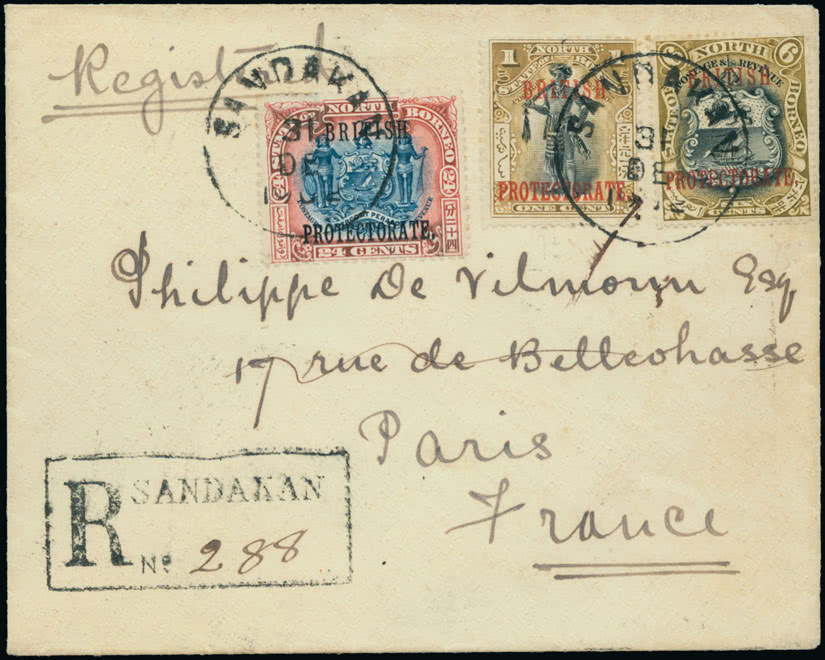 Regist
SANDAKAN
31
DE
1902
NORTH
BORNEO
BRITISH
PROTECTORATE.
24 CENTS
1
NORTH
1
BRITISH
PROTECTORATE.
ONE CENT
SANDAKAN
31
DE
1902
6
NORTH
BORNEO
POSTAGE & REVENUE
BRITISH
PROTECTORATE.
CENTS
Philippe De Vilmorin Esq
17 rue de Belleohasse
Paris
France
R SANDAKAN
No 288